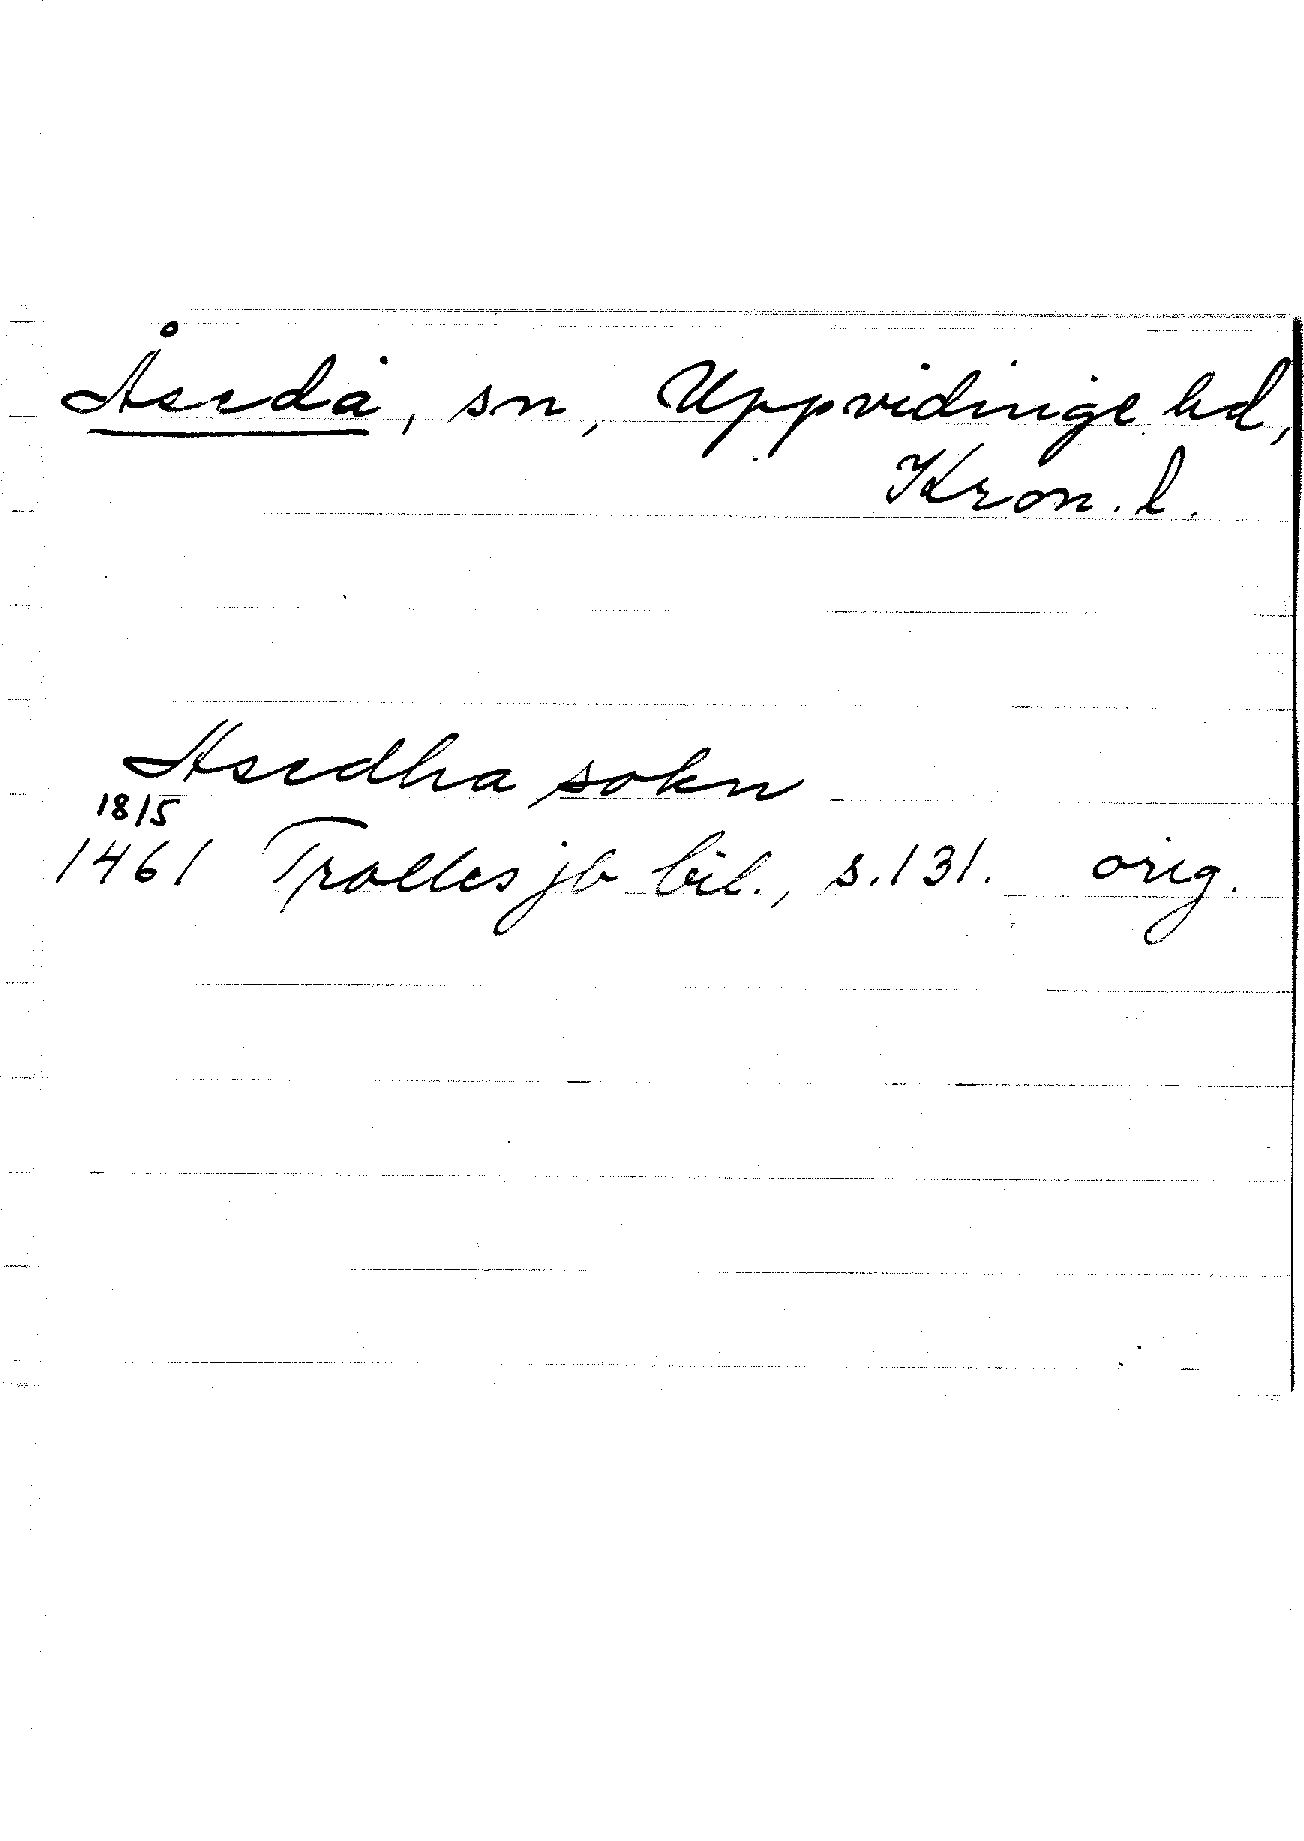 Åseda, sn, Uppvidinge hd,
Kron. l.
Asedha sokn
18/5
1461 Trolles jb bil., s. 131. orig.